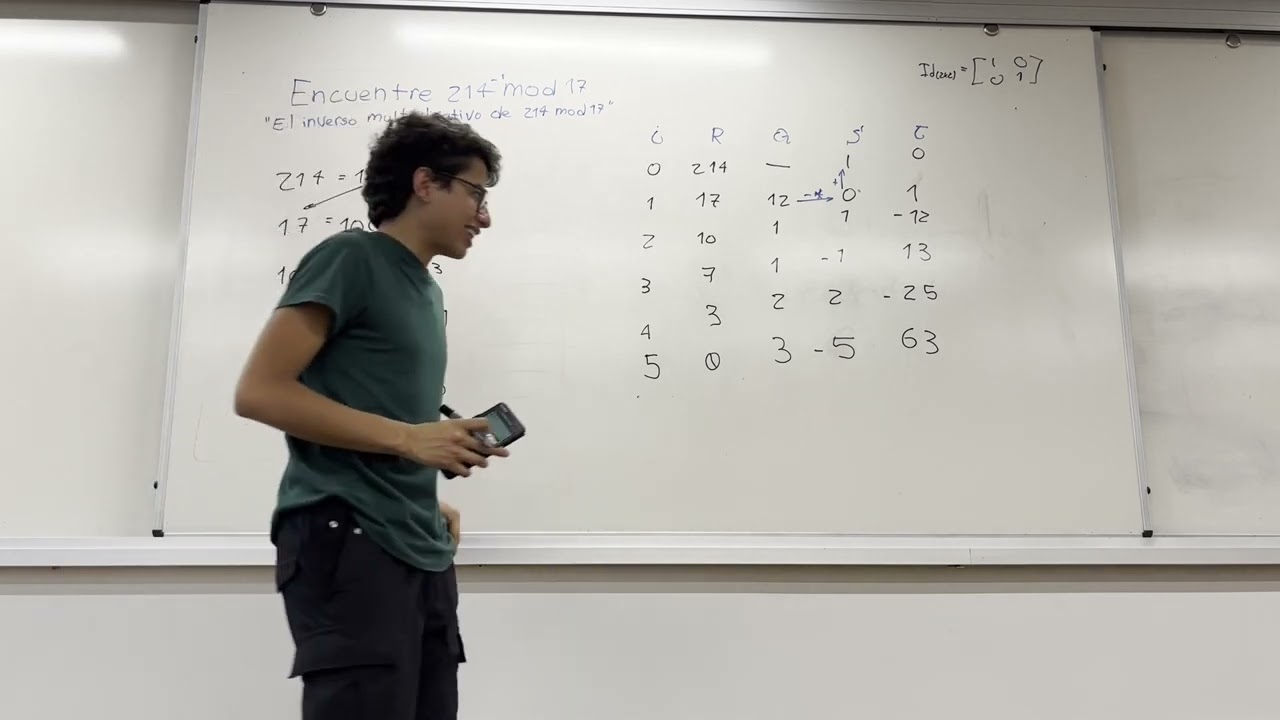 Encuentre 214⁻¹ mod 17
"El inverso de 214 mod 17"
214 = 1
17 = 10
10
3
Id(2x2) = [1 0
0 1]
i R Q S T
0 214 — 1 0
1 17 12 -* 0 1
+
2 10 1 1 -12
3 7 1 -1 13
4 3 2 2 -25
5 0 3 -5 63